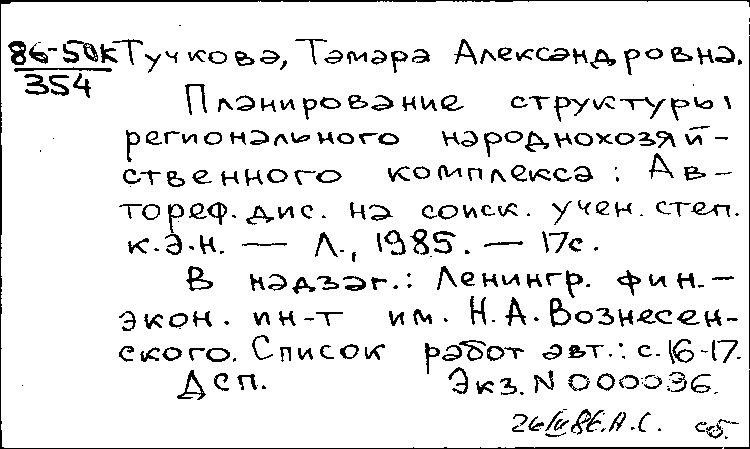 86-50К Тучкова, Тамара Александровна.
354
Планирование структуры
регионального народнохозяй-
ственного комплекса: Ав-
тореф. дис. на соиск. учен. степ.
к.э.н. — Л., 1985. — 17с.
В надзаг.: Ленингр. фин.-
экон. ин-т им. Н.А.Вознесен-
ского. Список работ авт.: с.16-17.
Дсп. Экз. N 000036.
А.С.